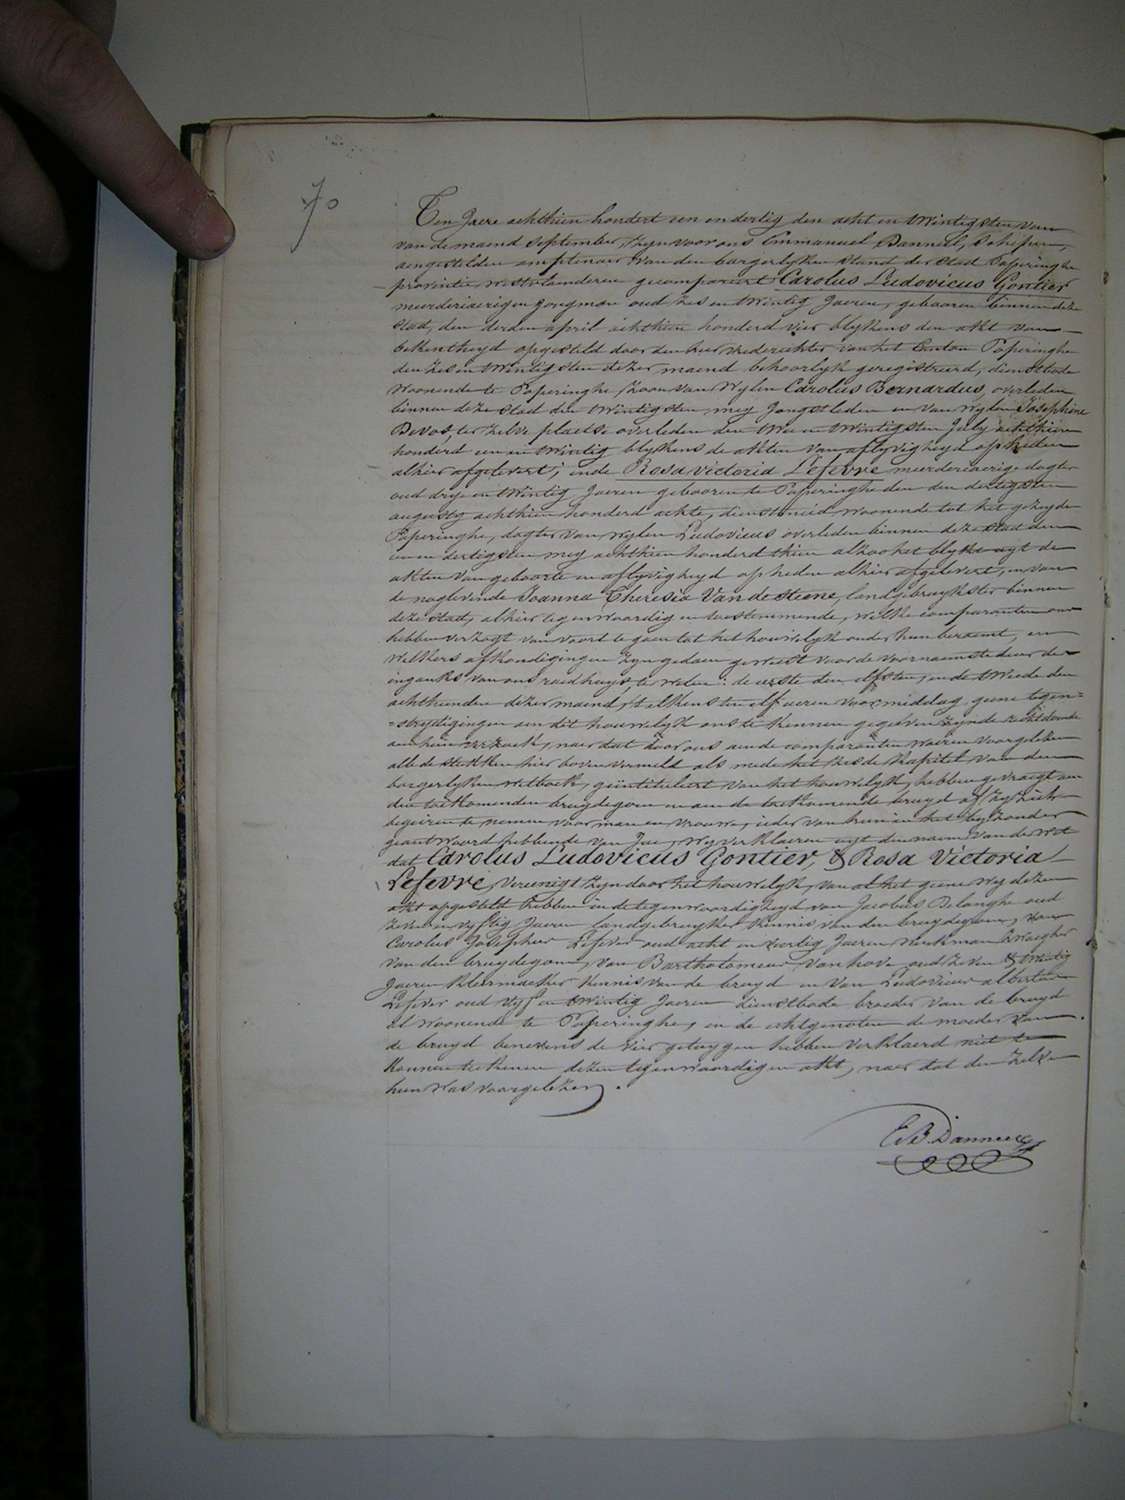 70
Ten Jaere achthien hondert een en dertig den acht en twintigsten van
van de maend September, zyn voor ons Emmanuel Danneel, Schepen,
aengestelden amptenaer van den borgerlyken stand der stad Poperinghe
provintie westvlaenderen gecompareert Carolus Ludovicus Gontier
meerderjaerigen jongman oud zes en twintig Jaeren, gebooren binnen deze
stad, den derden april achthien honderd vier blykens den akt van
bekentheyd opgesteld door den heer vrederechter van het Canton Poperinghe
den zes en twintigsten dezer maend behoorlyk geregistreerd, dienstbode
woonende te Poperinghe, zoon van wylen Carolus Bernardus, overleden
binnen deze stad den twintigsten mey jongstleden en van wylen Josephine
Devos, ter zelve plaetse overleden den twee en twintigsten July achthien
hondert een en twintig blykens de akten van aflyvigheyd op heden
alhier afgelevert; ende Rosa victoria Lefevre meerderjaerige dogter
oud dry en twintig Jaeren gebooren te Poperinghe den dertigsten
augusty achthien honderd achte, dienstmeid, woonende tot het gezeyde
Poperinghe, dogter van wylen Ludovicus overleden binnen deze stad den
een en dertigsten mey achthien honderd thien alzoo het blykt uyt de
akten van geboorte en aflyvigheyd op heden alhier afgelevert, en van
de naglevende Joanna Theresia Van de Steene, landgebruykster binnen
deze stad, alhier tegenwoordig en toestemmende, welke comparanten ons
hebben verzogt van voort te gaen tot het houwelyk onder hun beraemt, en
welkers afkondigingen zyn gedaen geweest voor de voornaemste deur der
inganks van ons raedhuys, te weten: de eerste den elfsten, en de tweede den
achthienden dezer maend, t'elkens ten elf uren voor middag, geene tegen=
=strydigingen aen dit houwelyk ons te kennen gegeven zynde rechtdoende
aen hun verzoek, naer dat door ons aen de comparanten waeren voorgelezen
alle de stukken hier boven vermeld als mede het zesde kapitel van den
borgerlyken wetboek, geintituleert van het houwelyk, hebben gevraegt aen
den toekomenden bruydegom en aen de toekomende bruyd of zy zich
begeiren te nemen voor man en vrouw, ieder van hun in het byzonder
geantwoord hebbende van Jae, wy verklaeren uyt den naem van de wet
dat Carolus Ludovicus Gontier, & Rosa Victoria
Lefevre, vereenigt zyn door het houwelyk, van al het geene wy dezen
akt opgesteld hebben in de tegenwoordigheyd van Jacobus Delanghe oud
zeven en vyftig Jaeren landgebruyker kennis van den bruydegom, van
Carolus Josephus Lefever oud acht en veertig Jaeren werkman
van den bruydegom, van Bartholomeus Vanhove oud zeven & twintig
Jaeren kleermaeker kennis van de bruyd en van Ludovicus albertus
Lefever oud vyf en twintig Jaeren dienstbode broeder van de bruyd
al woonende te Poperinghe, en de echtgenoten de moeder van
de bruyd benevens de vier getuygen hebben verklaerd niet te
konnen teekenen dezen tegenwoordigen akt, naer dat den zelven
hun was voorgelezen.
E. B. Danneel